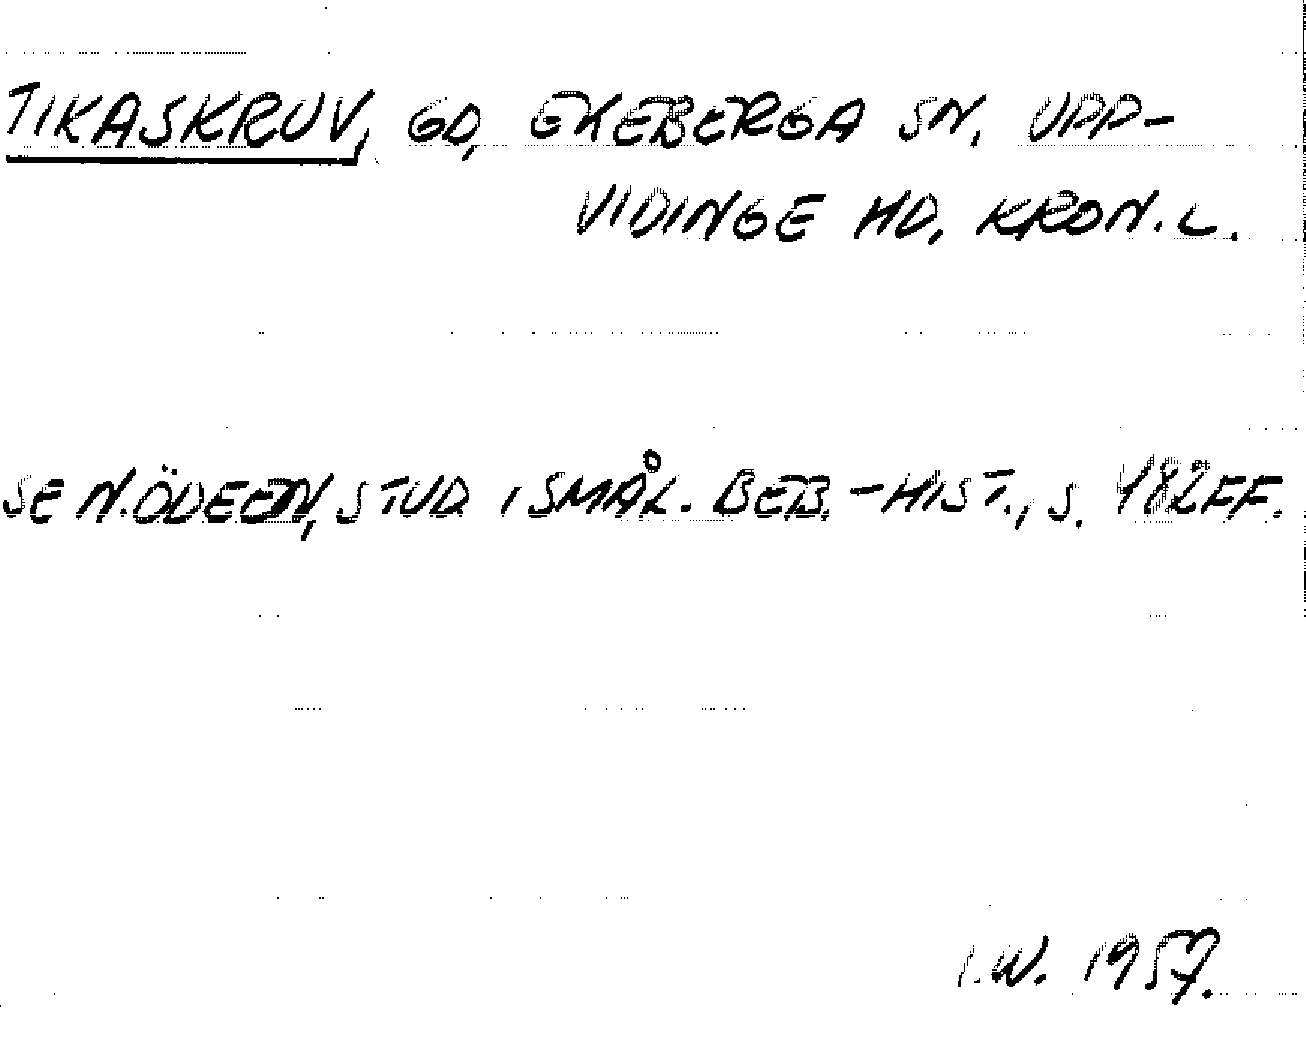 TIKASKRUV, GD, EKEBERGA SN, UPP-
VIDINGE HD, KRON. L.
SE N. ÖDEEN, STUD I SMÅL. BEB.-HIST., S. 482FF.
I.W. 1957.